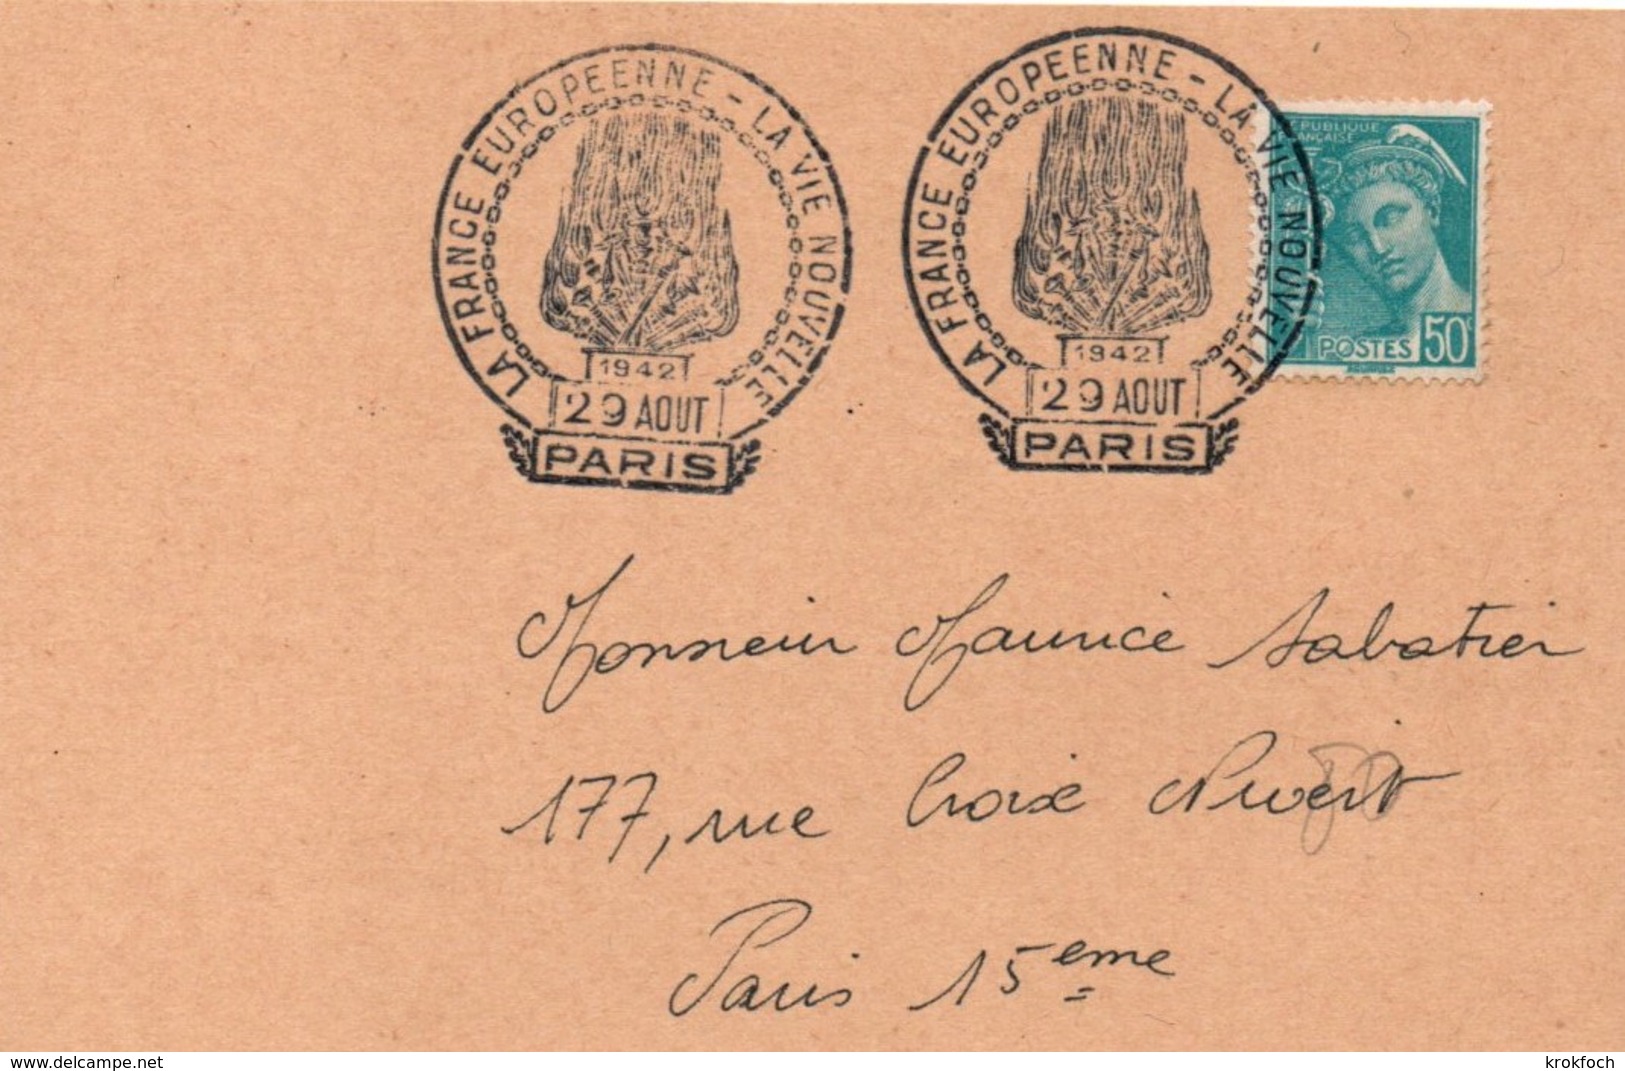 LA FRANCE EUROPEENNE - LA VIE NOUVELLE
1942
29 AOUT
PARIS
LA FRANCE EUROPEENNE - LA VIE NOUVELLE
1942
29 AOUT
PARIS
REPUBLIQUE
FRANÇAISE
POSTES 50c
Monsieur Maurice Sabatier
177, rue Croix Nivert
Paris 15eme
www.delcampe.net
krokfoch